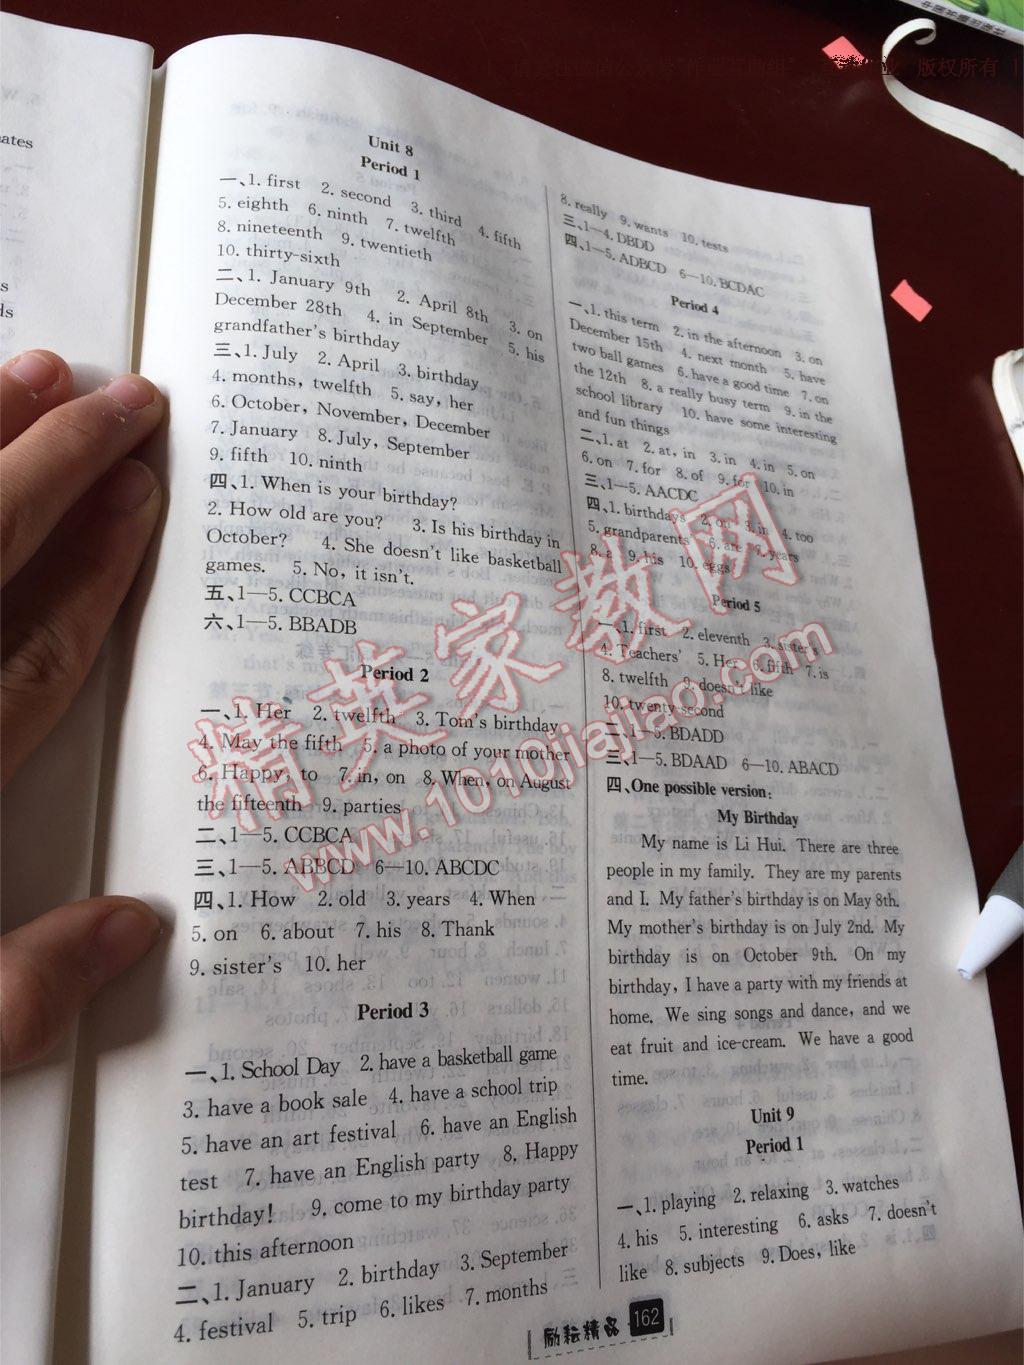 版权所有
ates
s
ds
Unit 8
Period 1
一、1. first 2. second 3. third 4. fifth
5. eighth 6. ninth 7. twelfth
8. nineteenth 9. twentieth
10. thirty-sixth
二、1. January 9th 2. April 8th 3. on
December 28th 4. in September 5. his
grandfather's birthday
三、1. July 2. April 3. birthday
4. months, twelfth 5. say, her
6. October, November, December
7. January 8. July, September
9. fifth 10. ninth
四、1. When is your birthday?
2. How old are you? 3. Is his birthday in
October? 4. She doesn't like basketball
games. 5. No, it isn't.
五、1—5. CCBCA
六、1—5. BBADB
Period 2
一、1. Her 2. twelfth 3. Tom's birthday
4. May the fifth 5. a photo of your mother
6. Happy, to 7. in, on 8. When, on August
the fifteenth 9. parties
二、1—5. CCBCA
三、1—5. ABBCD 6—10. ABCDC
四、1. How 2. old 3. years 4. When
5. on 6. about 7. his 8. Thank
9. sister's 10. her
Period 3
一、1. School Day 2. have a basketball game
3. have a book sale 4. have a school trip
5. have an art festival 6. have an English
test 7. have an English party 8. Happy
birthday! 9. come to my birthday party
10. this afternoon
二、1. January 2. birthday 3. September
4. festival 5. trip 6. likes 7. months
8. really 9. wants 10. tests
三、1—4. DBDD
四、1—5. ADBCD 6—10. BCDAC
Period 4
一、1. this term 2. in the afternoon 3. on
December 15th 4. next month 5. have
two ball games 6. have a good time 7. on
the 12th 8. a really busy term 9. in the
school library 10. have some interesting
and fun things
二、1. at 2. at, in 3. in 4. in 5. on
6. on 7. for 8. of 9. for 10. in
三、1—5. AACDC
四、1. birthdays 2. on 3. in 4. too
5. grandparents 6. are 7. years
8. a 9. his 10. eggs
Period 5
一、1. first 2. eleventh 3. sister's
4. Teachers' 5. Her 6. fifth 7. is
8. twelfth 9. doesn't like
10. twenty-second
二、1—5. BDADD
三、1—5. BDAAD 6—10. ABACD
四、One possible version:
My Birthday
My name is Li Hui. There are three
people in my family. They are my parents
and I. My father's birthday is on May 8th.
My mother's birthday is on July 2nd. My
birthday is on October 9th. On my
birthday, I have a party with my friends at
home. We sing songs and dance, and we
eat fruit and ice-cream. We have a good
time.
Unit 9
Period 1
一、1. playing 2. relaxing 3. watches
4. his 5. interesting 6. asks 7. doesn't
like 8. subjects 9. Does, like
励耘精品 162
精英家教网
www.1010jiajiao.com